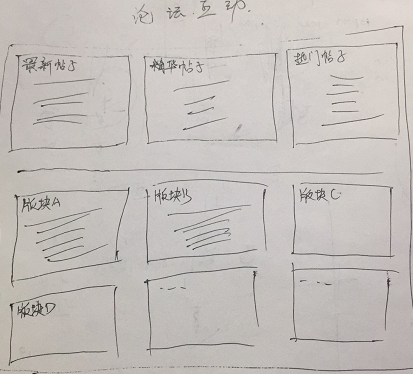 论坛互动
最新帖子
精华帖子
热门帖子
版块A
版块B
版块C
版块D
---
---